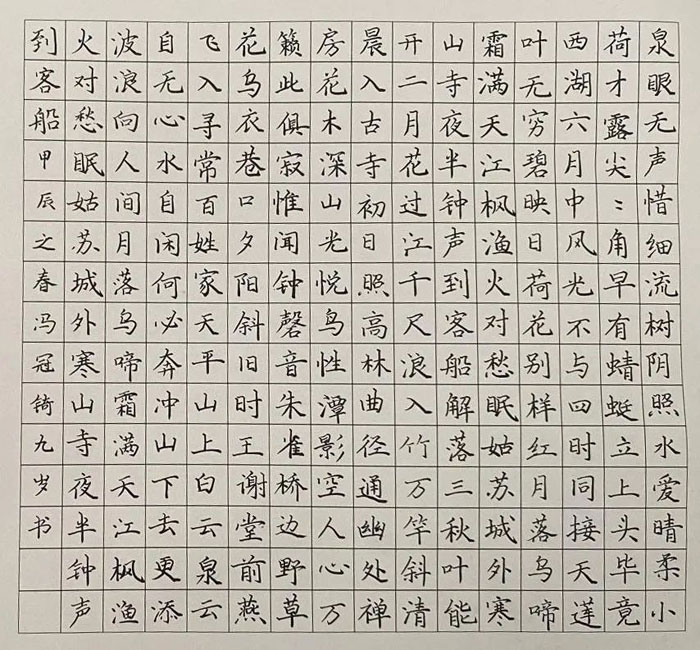 泉眼无声惜细流树阴照水爱晴柔小
荷才露尖：角早有蜻蜓立上头毕竟
西湖六月中风光不与四时同接天莲
叶无穷碧映日荷花别样红月落乌啼
霜满天江枫渔火对愁眠姑苏城外寒
山寺夜半钟声到客船解落三秋叶能
开二月花过江千尺浪入竹万竿斜清
晨入古寺初日照高林曲径通幽处禅
房花木深山光悦鸟性潭影空人心万
籁此俱寂惟闻钟磬音朱雀桥边野草
花乌衣巷口夕阳斜旧时王谢堂前燕
飞入寻常百姓家天平山上白云泉云
自无心水自闲何必奔冲山下去更添
波浪向人间月落乌啼霜满天江枫渔
火对愁眠姑苏城外寒山寺夜半钟声
到客船甲辰之春冯冠锜九岁书